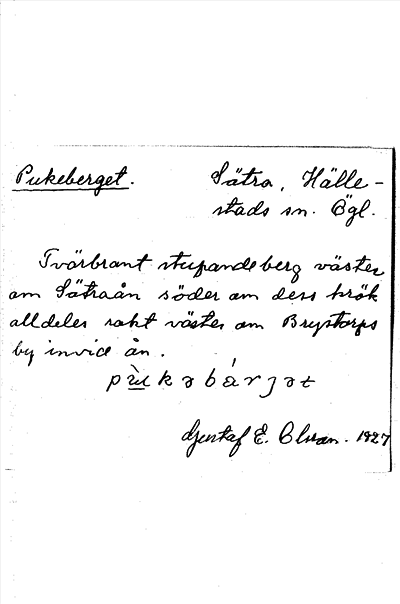 Pukeberget. Sätra, Hälle-
stads sn. Ögl.
Tvärbrant stupande berg väster
om Sätraån söder om dess krök
alldeles rakt väster om Brystorps
by invid ån.
pùkəbárjət
Gustaf E. Olsson. 1927